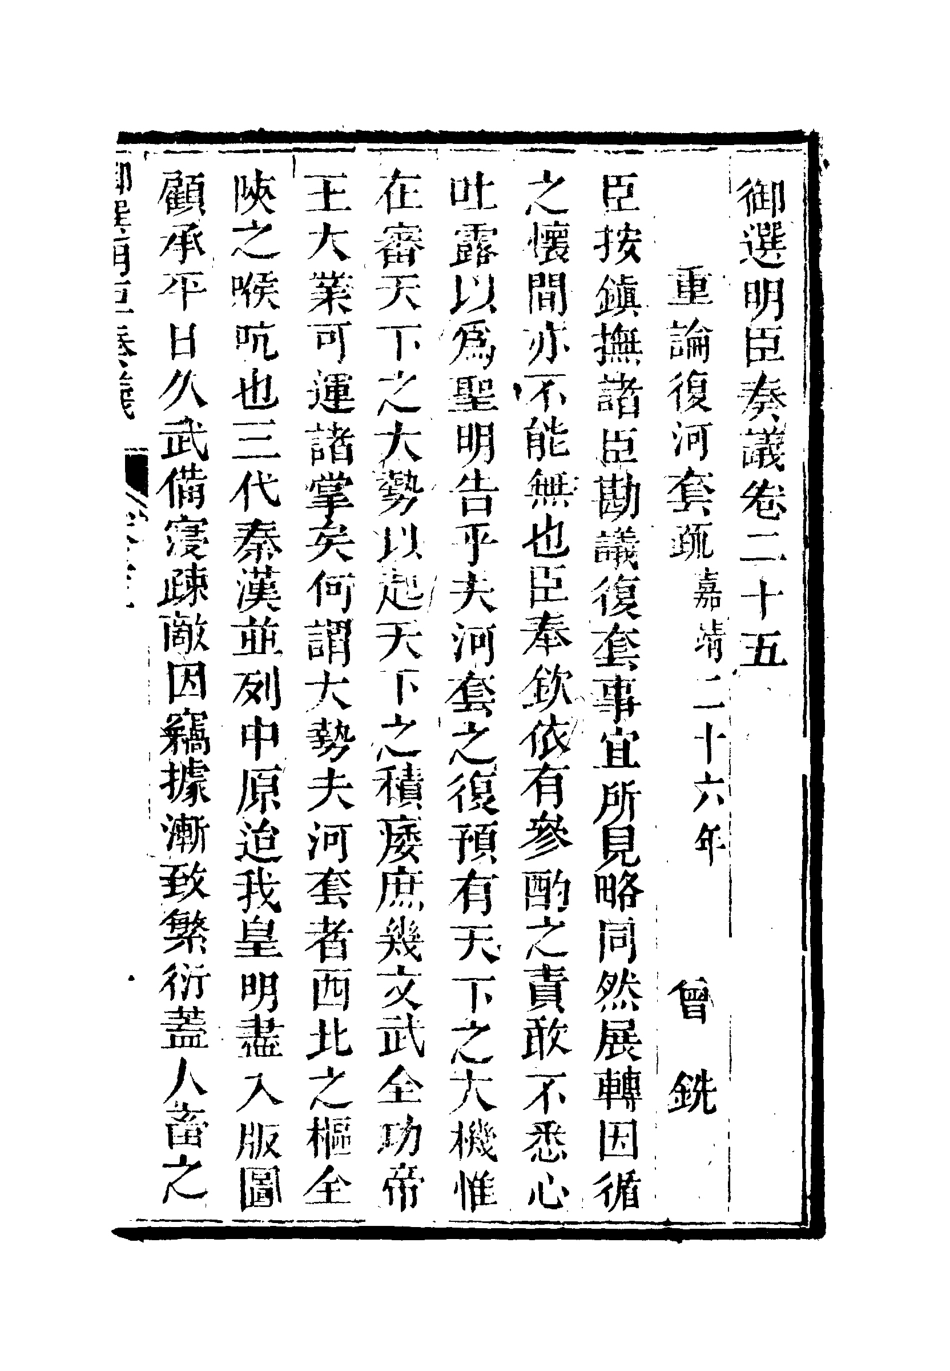 御選明臣奏議卷二十五
重論復河套疏嘉靖二十六年 曾銑
臣按鎮撫諸臣勘議復套事宜所見略同然展轉因循
之懷間亦不能無也臣奉欽依有參酌之責敢不悉心
吐露以爲聖明告乎夫河套之復預有天下之大機惟
在審天下之大勢以起天下之積痿庶幾文武全功帝
王大業可運諸掌矣何謂大勢夫河套者西北之樞全
陜之喉吭也三代秦漢並列中原迨我皇明盡入版圖
顧承平日久武備寖疎敵因竊據漸致繁衍蓋人畜之
御選明臣奏議